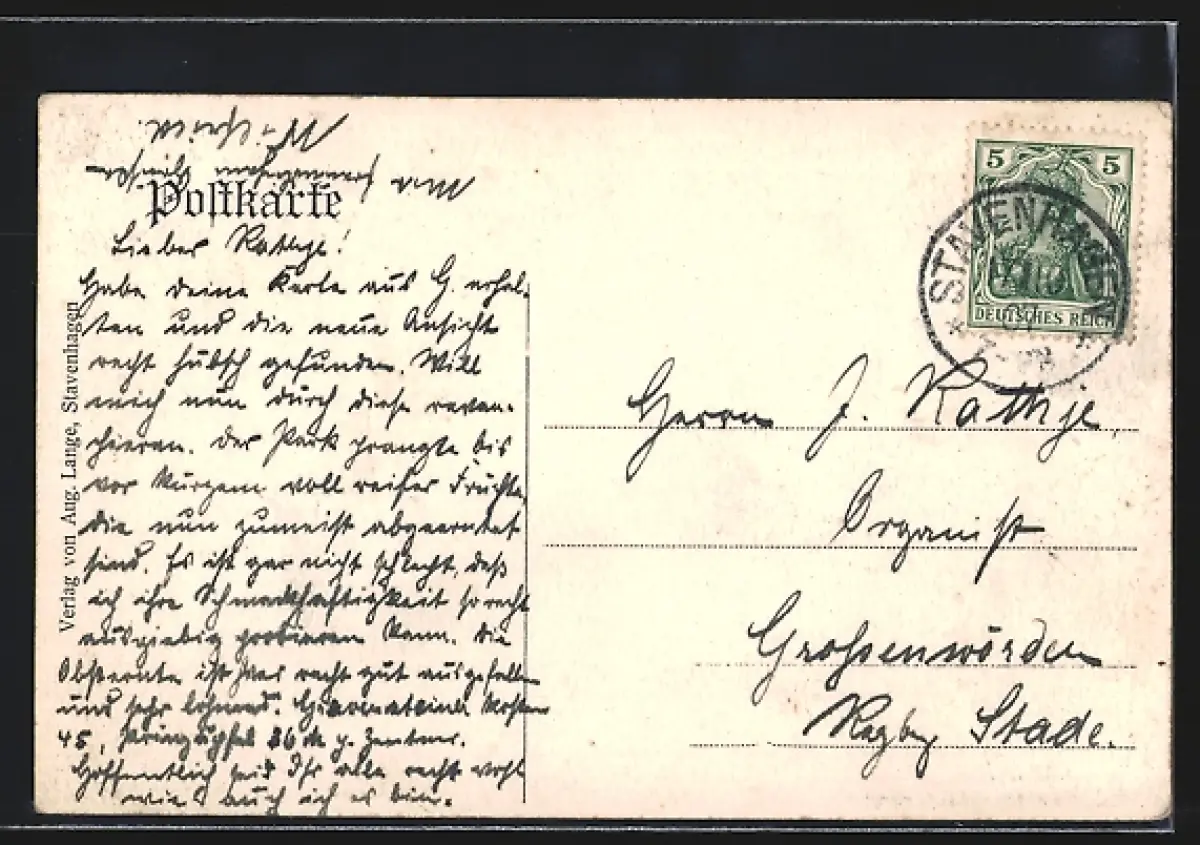 Postkarte
Lieber Rathje!
Habe deine Karte aus G. erhal-
ten und die neue Ansicht
recht hübsch gefunden. Will
mich nun durch diese revan-
chieren. Der Park prangte bis
vor kurzem voll reifer Früchte,
die nun zumeist abgeerntet
sind. Es ist gar nicht schlecht, daß
ich ihre Schmackhaftigkeit so recht
ausgiebig probieren kann. Die
Obsternte ist hier recht gut ausgefallen
und sehr lohnend. Gravensteiner kosten
45, Prinzäpfel 36 M p. Zentner.
Hoffentlich seid Ihr alle recht wohl
wies auch ich es bin.
Verlag von Aug. Lange, Stavenhagen
5 5
DEUTSCHES REICH
STAVENHAGEN
Herrn J. Rathje,
Organist
Grossenwörden
Regbez Stade.